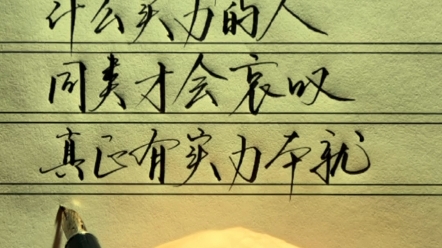 什么实力的人
同类才会哀叹
真正有实力本就